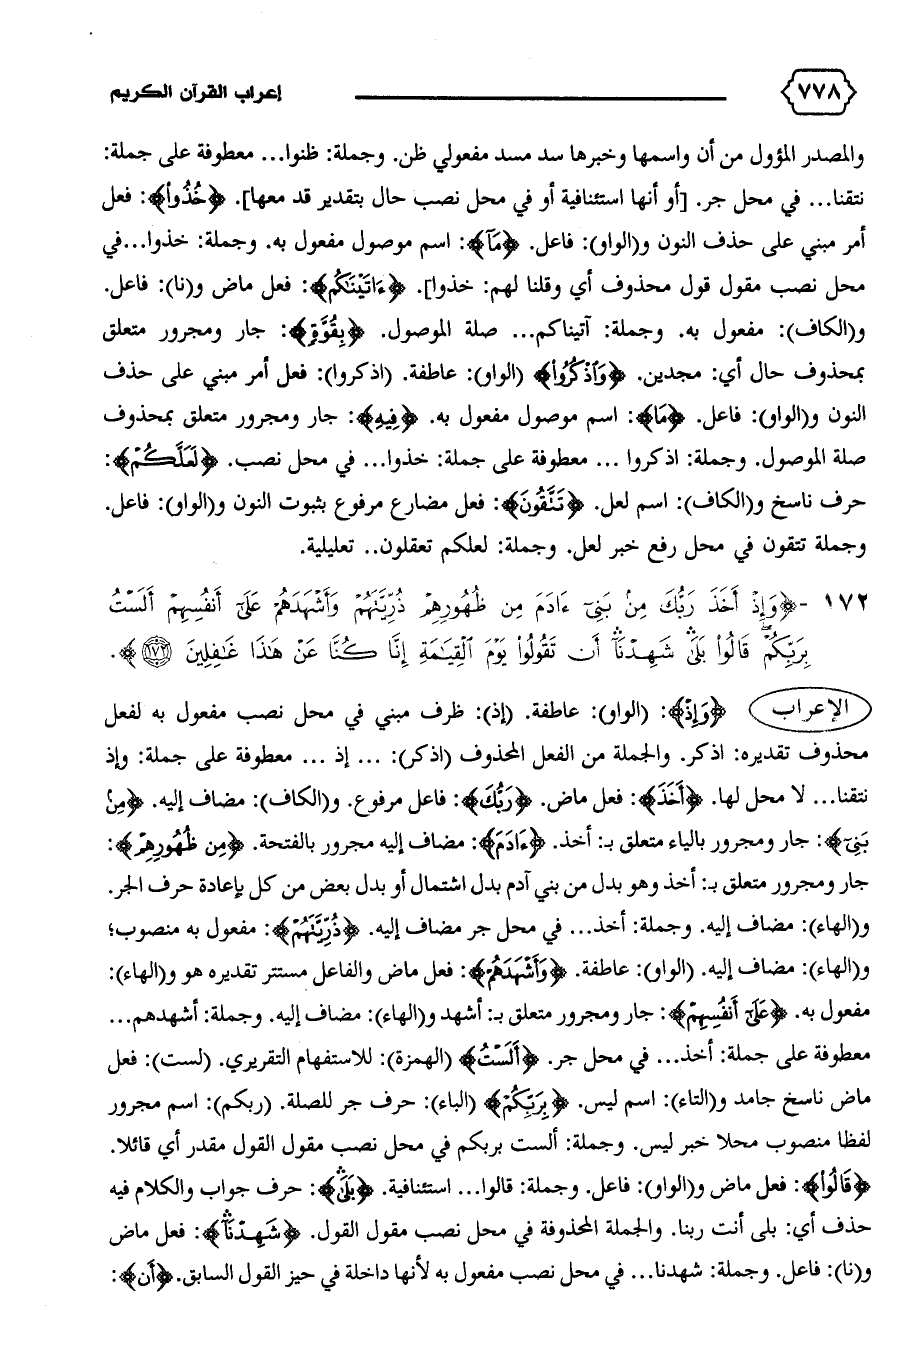 ٧٧٨ إعراب القرآن الكريم
والمصدر المؤول من أن واسمها وخبرها سد مسد مفعولي ظن. وجملة: ظنوا... معطوفة على جملة:
نتقنا... في محل جر. [أو أنها استئنافية أو في محل نصب حال بتقدير قد معها]. ﴿خُذُوا۟﴾: فعل
أمر مبني على حذف النون و(الواو): فاعل. ﴿مَآ﴾: اسم موصول مفعول به. وجملة: خذوا...في
محل نصب مقول قول محذوف أي وقلنا لهم: خذوا]. ﴿ءَاتَيْنَـٰكُم﴾: فعل ماض و(نا): فاعل.
و(الكاف): مفعول به. وجملة: آتيناكم... صلة الموصول. ﴿بِقُوَّةٍ﴾: جار ومجرور متعلق
بمحذوف حال أي: مجدين. ﴿وَٱذْكُرُوا۟﴾ (الواو): عاطفة. (اذكروا): فعل أمر مبني على حذف
النون و(الواو): فاعل. ﴿مَا﴾: اسم موصول مفعول به. ﴿فِيهِ﴾: جار ومجرور متعلق بمحذوف
صلة الموصول. وجملة: اذكروا ... معطوفة على جملة: خذوا... في محل نصب. ﴿لَعَلَّكُمْ﴾:
حرف ناسخ و(الكاف): اسم لعل. ﴿تَتَّقُونَ﴾: فعل مضارع مرفوع بثبوت النون و(الواو): فاعل.
وجملة تتقون في محل رفع خبر لعل. وجملة: لعلكم تعقلون.. تعليلية.
١٧٢ -﴿وَإِذْ أَخَذَ رَبُّكَ مِنۢ بَنِىٓ ءَادَمَ مِن ظُهُورِهِمْ ذُرِّيَّتَهُمْ وَأَشْهَدَهُمْ عَلَىٰٓ أَنفُسِهِمْ أَلَسْتُ
بِرَبِّكُمْ ۖ قَالُوا۟ بَلَىٰ ۛ شَهِدْنَآ ۛ أَن تَقُولُوا۟ يَوْمَ ٱلْقِيَـٰمَةِ إِنَّا كُنَّا عَنْ هَـٰذَا غَـٰفِلِينَ ١٧٢﴾.
الإعراب ﴿وَإِذْ﴾: (الواو): عاطفة. (إذ): ظرف مبني في محل نصب مفعول به لفعل
محذوف تقديره: اذكر. والجملة من الفعل المحذوف (اذكر): ... إذ ... معطوفة على جملة: وإذ
نتقنا... لا محل لها. ﴿أَخَذَ﴾: فعل ماض. ﴿رَبُّكَ﴾: فاعل مرفوع. و(الكاف): مضاف إليه. ﴿مِنۢ
بَنِىٓ﴾: جار ومجرور بالياء متعلق بـ: أخذ. ﴿ءَادَمَ﴾: مضاف إليه مجرور بالفتحة. ﴿مِن ظُهُورِهِمْ﴾:
جار ومجرور متعلق بـ: أخذ وهو بدل من بني آدم بدل اشتمال أو بدل بعض من كل بإعادة حرف الجر.
و(الهاء): مضاف إليه. وجملة: أخذ... في محل جر مضاف إليه. ﴿ذُرِّيَّتَهُمْ﴾: مفعول به منصوب؛
و(الهاء): مضاف إليه. (الواو): عاطفة. ﴿وَأَشْهَدَهُمْ﴾: فعل ماض والفاعل مستتر تقديره هو و(الهاء):
مفعول به. ﴿عَلَىٰٓ أَنفُسِهِمْ﴾: جار ومجرور متعلق بـ: أشهد و(الهاء): مضاف إليه. وجملة: أشهدهم...
معطوفة على جملة: أخذ... في محل جر. ﴿أَلَسْتُ﴾ (الهمزة): للاستفهام التقريري. (لست): فعل
ماض ناسخ جامد و(التاء): اسم ليس. ﴿بِرَبِّكُمْ﴾ (الباء): حرف جر للصلة. (ربكم): اسم مجرور
لفظا منصوب محلا خبر ليس. وجملة: ألست بربكم في محل نصب مقول القول مقدر أي قائلا.
﴿قَالُوا۟﴾: فعل ماض و(الواو): فاعل. وجملة: قالوا... استئنافية. ﴿بَلَىٰ ۛ﴾: حرف جواب والكلام فيه
حذف أي: بلى أنت ربنا. والجملة المحذوفة في محل نصب مقول القول. ﴿شَهِدْنَآ ۛ﴾: فعل ماض
و(نا): فاعل. وجملة: شهدنا... في محل نصب مفعول به لأنها داخلة في حيز القول السابق.﴿أَن﴾: